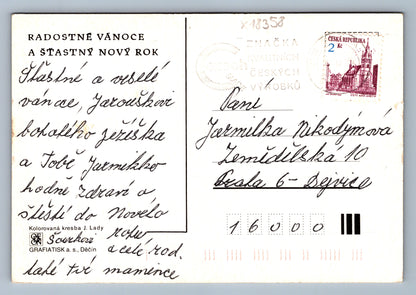 X-18358
RADOSTNÉ VÁNOCE
A ŠŤASTNÝ NOVÝ ROK
Šťastné a veselé
vánoce, Jarouškovi
bohatého ježíška
a Tobě Jarmilko
hodně zdraví a
štěstí do Nového
roku
a celé rod.
také tvé mamince
Kolorovaná kresba J. Lady
GRAFIATISK a. s., Děčín
ZNAČKA
ČESKÝCH
VÝROBKŮ
ČESKÁ REPUBLIKA
2 Kč
Paní
Jarmilka Nikodýmová
Zemědělská 10
Praha 6 - Dejvice
16000